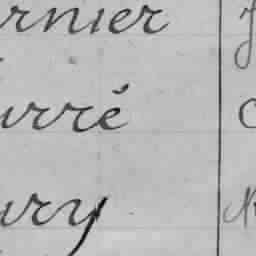 rnier
urré
ury